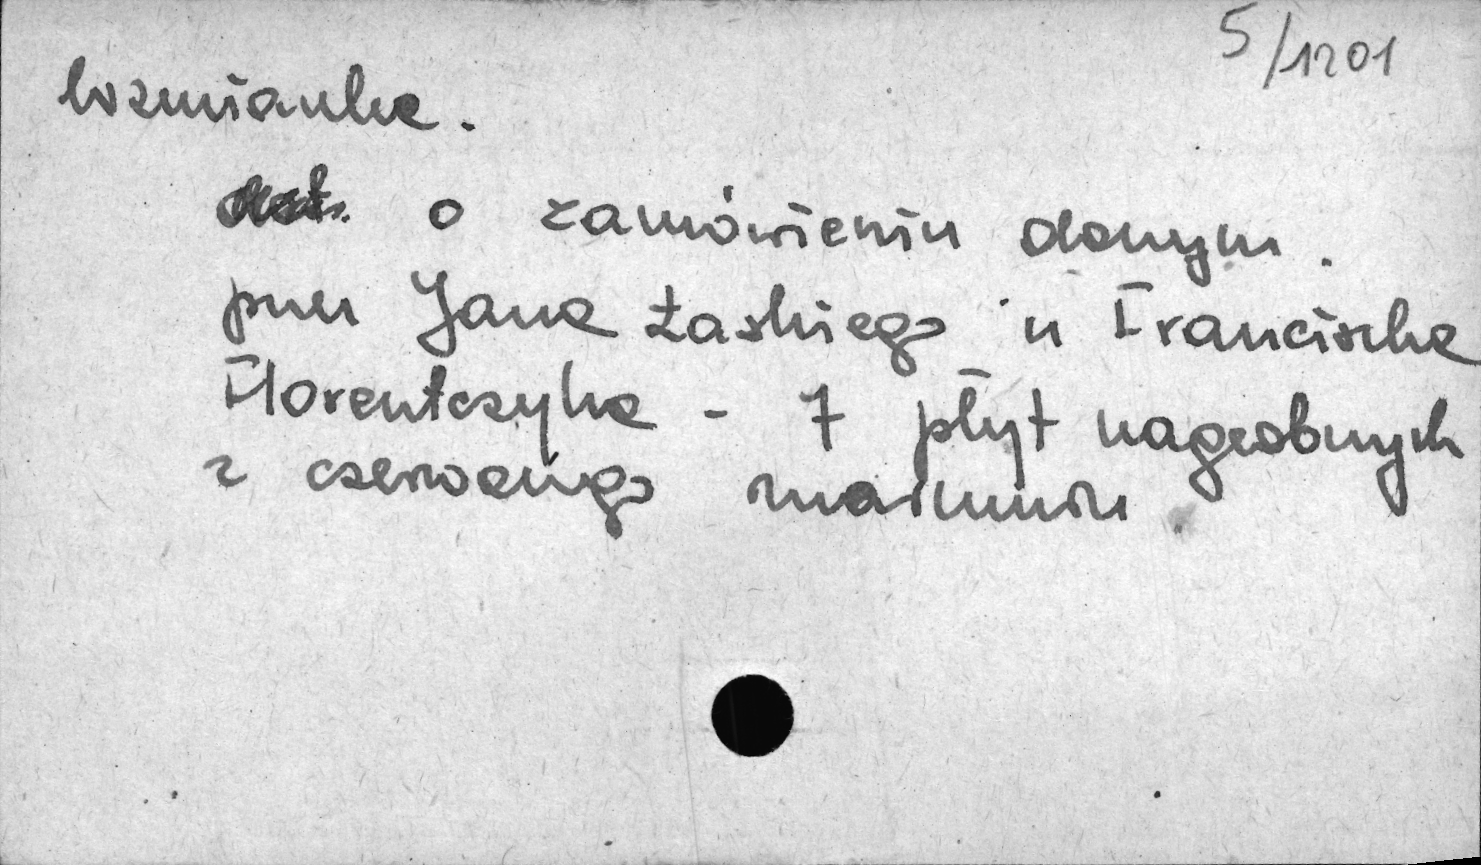 5/1201
wzmianka.
o zamówieniu danym.
przez Jana Łaskiego u Franciszka
Florentczyka - 7 płyt nagrobnych
z czerwonego marmuru